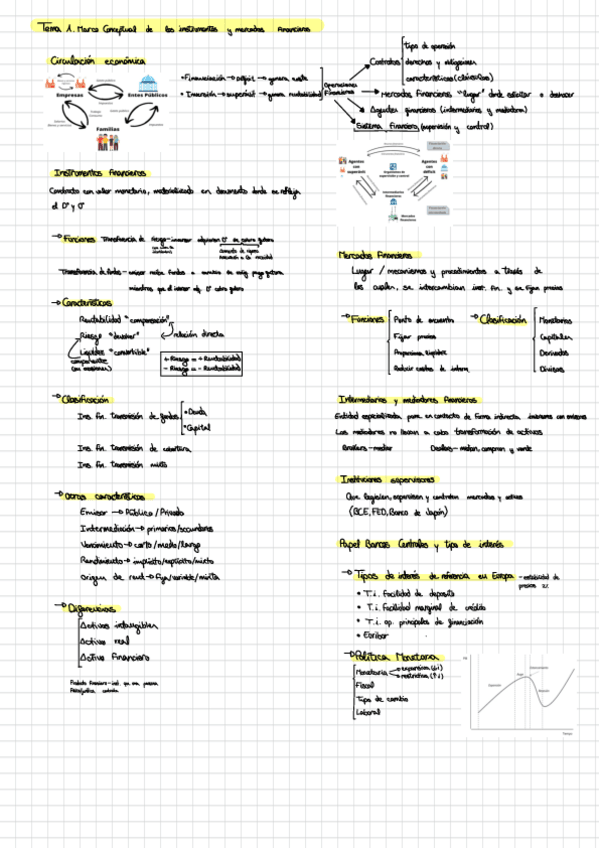 Tema 1. Marco Conceptual de los instrumentos y mercados financieros
Circulación económica
Empresas
Entes Públicos
Familias
• Financiación → déficit → genera coste
• Inversión → superávit → genera rentabilidad
Operaciones financieras
Contratos
tipo de operación
derechos y obligaciones
características (cláusulas)
Mercados financieros, "lugar" donde solicitar o destocar
Agentes financieros (intermediarios y mediadores)
Sistema financiero (supervisión y control)
Agentes con superávit
Agentes con déficit
Mercados financieros
Instrumentos financieros
Contrato con valor monetario, materializado en documento donde se refleja
el Dº y Oº
→ Funciones Transferencia de riesgo - inversor adquieren Dº de cobro futuro
Transferencia de fondos - emisor recibe fondos a cambio de oblig. pago futuro
mientras que el inversor adq. Dº cobro futuro
→ Características
Rentabilidad "compensación"
Riesgo "devolver"
relación directa
Liquidez "convertible"
+ Riesgo = + Rentabilidad
- Riesgo = - Rentabilidad
→ Clasificación
Ins. fin. transmisión de fondos
• Deuda
• Capital
Ins. fin. transmisión de cobertura
Ins. fin. transmisión mixta
→ Otras características
Emisor → Público / Privado
Intermediación → primarios/secundarios
Vencimiento → corto/medio/largo
Rendimiento → implícito/explícito/mixto
Origen de rend → fija/variable/mixta
→ Diferencias
Activos intangibles
Activo real
Activo Financiero
Mercados Financieros
Lugar / mecanismos y procedimientos a través de
los cuales, se intercambian inst. fin. y se fijan precios
→ Funciones
Punto de encuentro
Fijar precios
Proporciona liquidez
Reducir costes de interm.
→ Clasificación
Monetarios
Capitales
Derivados
Divisas
Intermediarios y mediadores financieros
Entidad especializada pone en contacto de forma indirecta inversores con emisores
Los mediadores no llevan a cabo transformación de activos
Brokers - mediar
Dealers - median, compran y vende
Instituciones supervisoras
Que legislan, supervisan y controlan mercados y activos
(BCE, FED, Banco de Japón)
Papel Bancos Centrales y tipo de interés
→ Tipos de interés de referencia en Europa - estabilidad de precios 2%
• T.i. facilidad de depósito
• T.i. facilidad marginal de crédito
• T.i. op. principales de financiación
• Euribor
→ Política Monetaria
Monetaria
expansiva (↓i)
restrictiva (↑i)
Fiscal
Tipo de cambio
Laboral